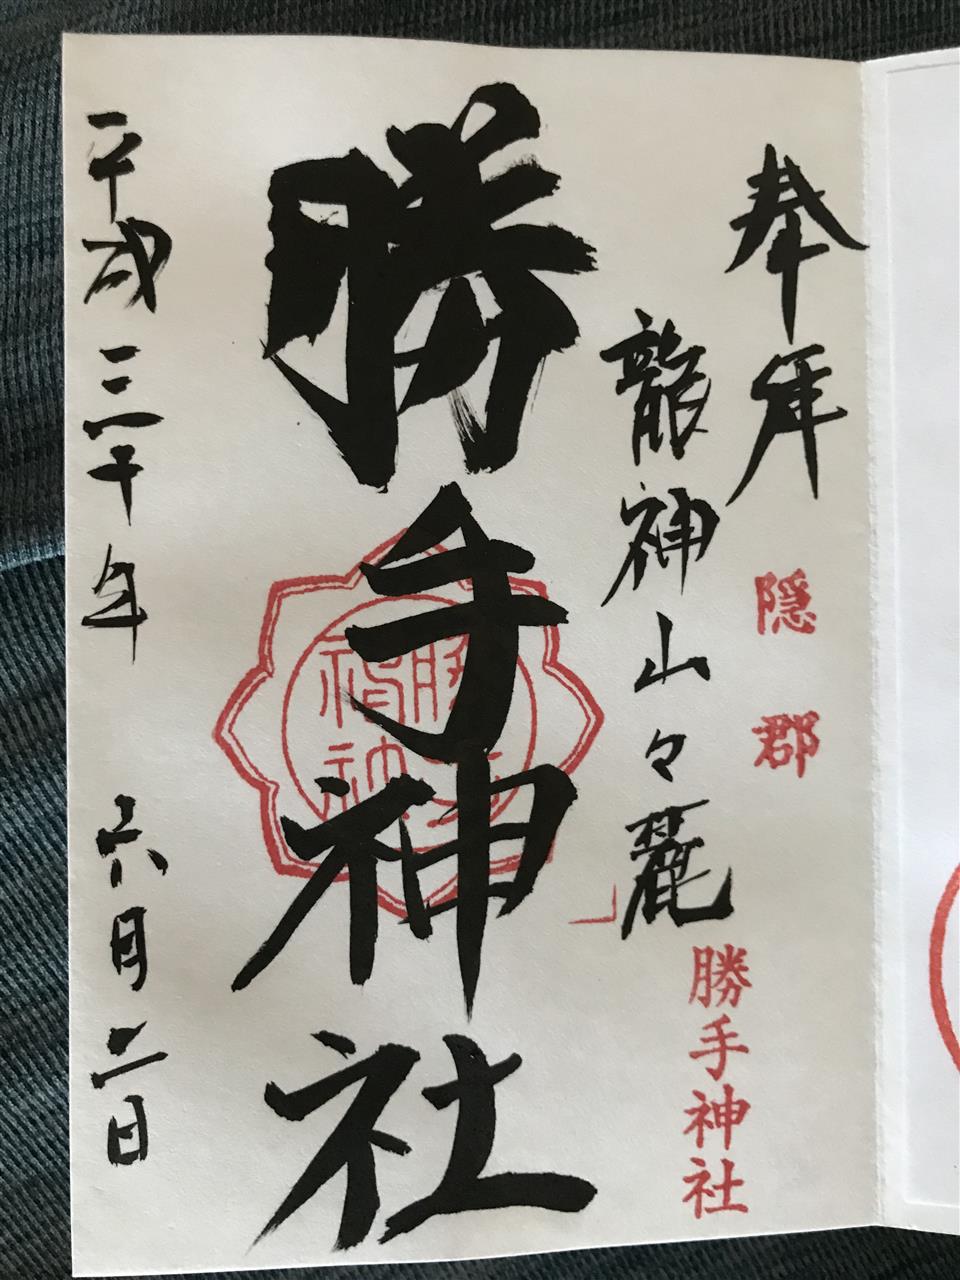 奉拝
隠郡
龍神山々麓
勝手神社
勝手神社
平成三十年 六月二日